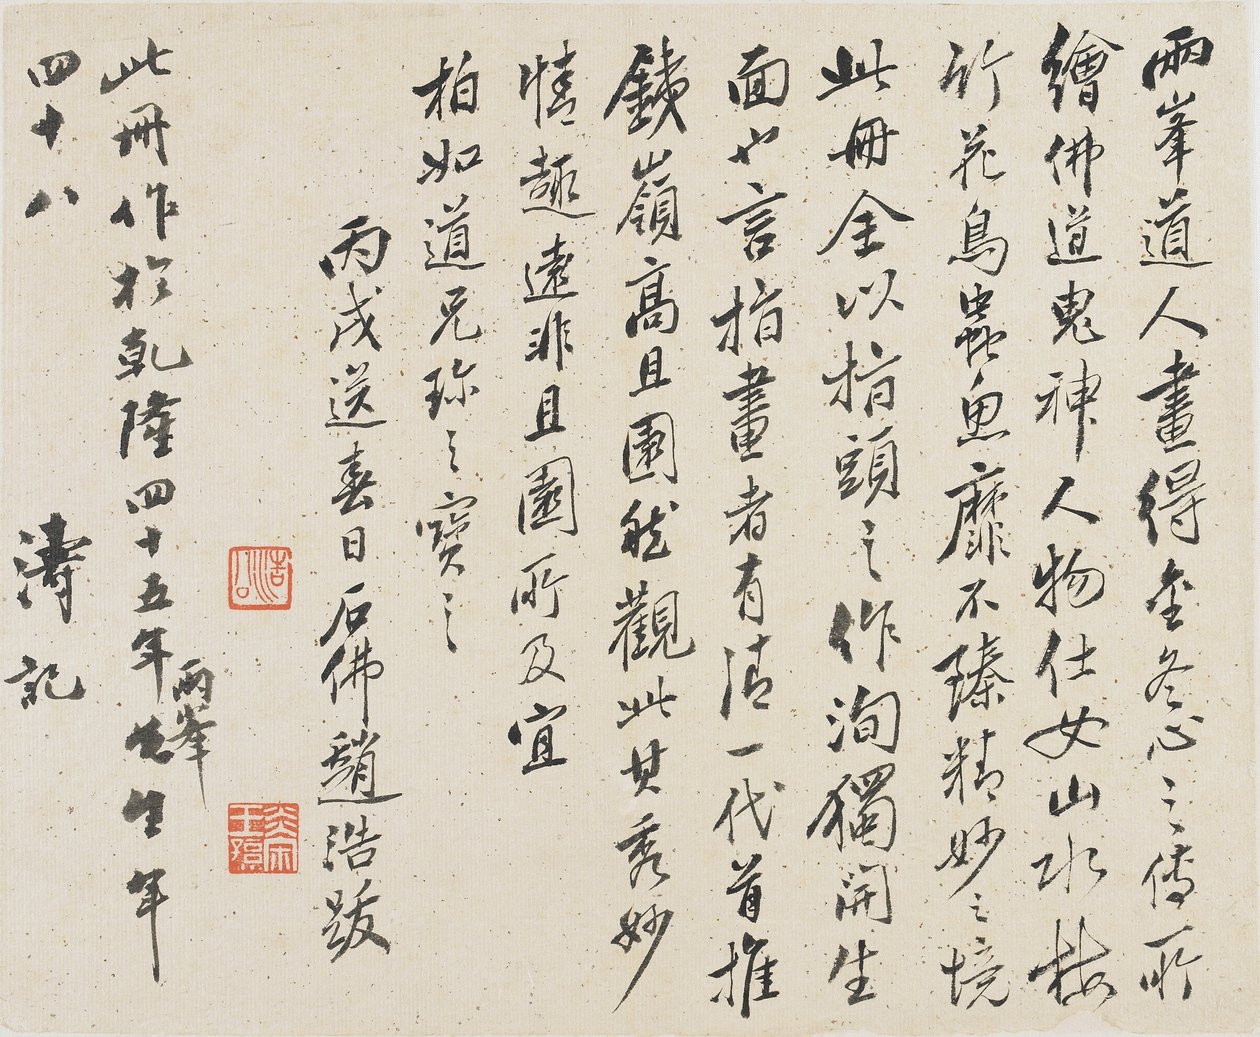 兩峯道人畫得金冬心之傳所
繪佛道鬼神人物仕女山水梅
竹花鳥蟲魚靡不臻精妙之境
此冊全以指頭之作洵獨開生
面也言指畫者有清一代首推
銕嶺高且園然觀此其秀妙
情趣遠非且園所及宜
柏如道兄珍之寶之
丙戌送春日石佛趙浩跋
浩公
炎宋王孫
此冊作於乾隆四十五年兩峯先生年
四十八 濤記